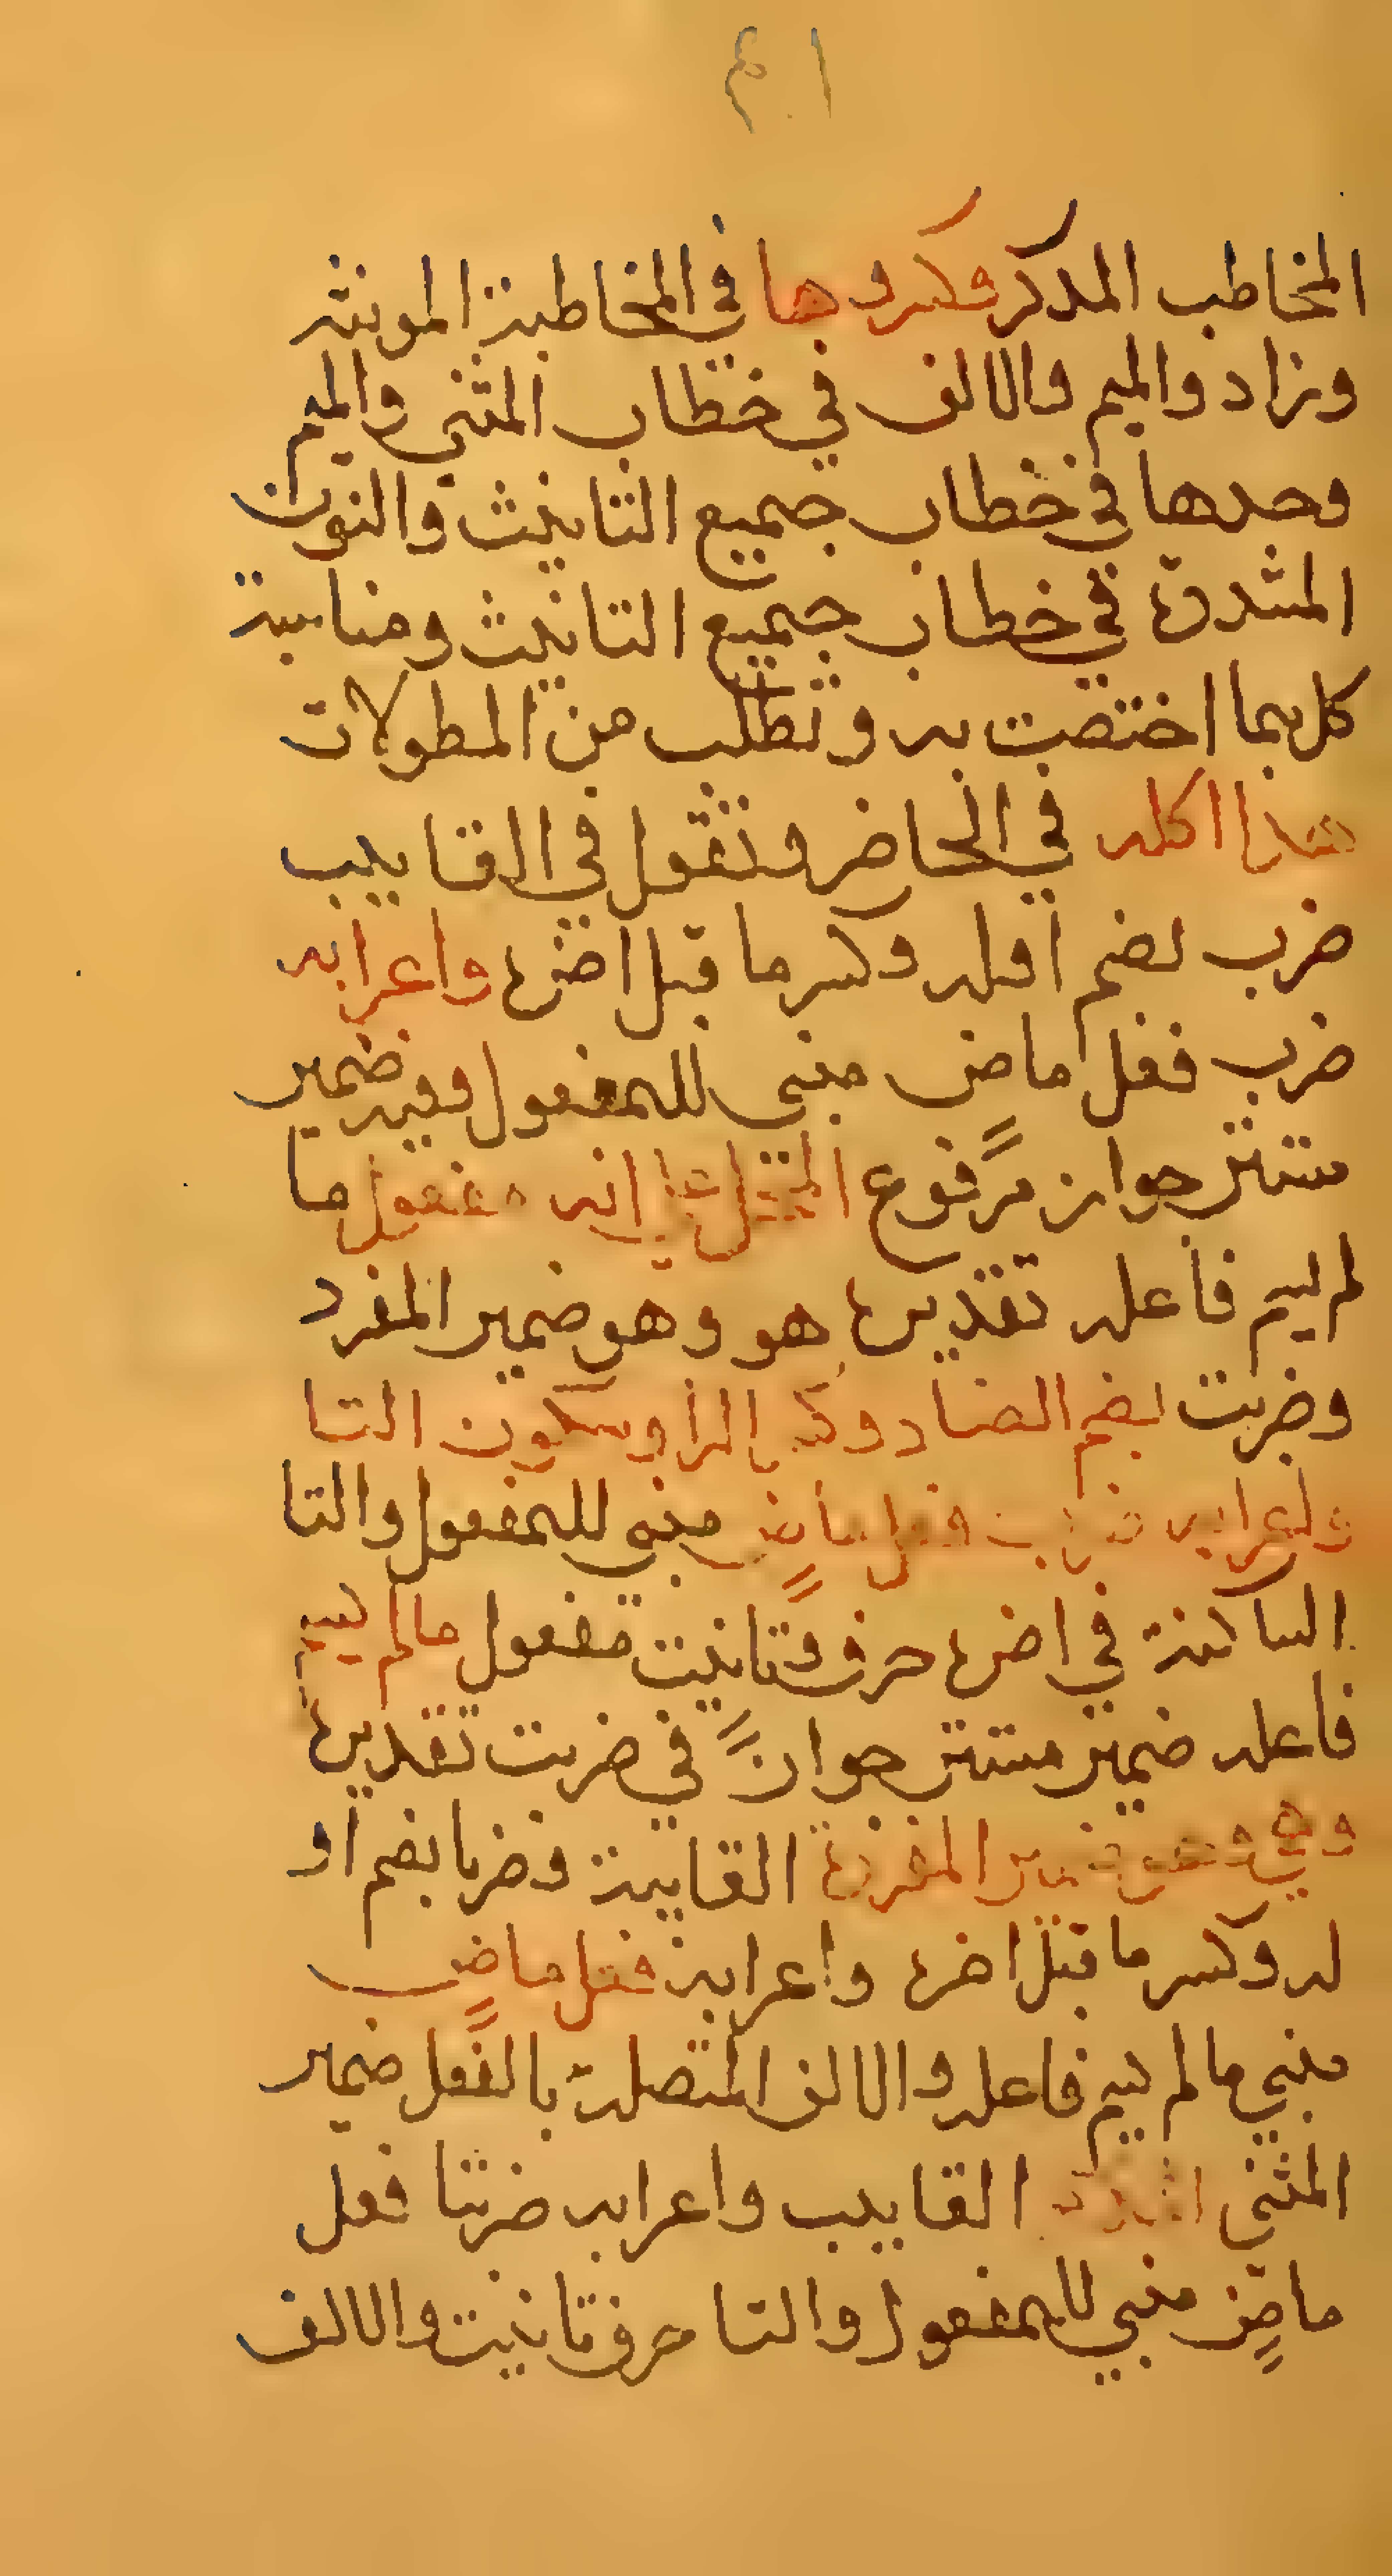 ١٠٤
المخاطب المدكر وكسروها في المخاطبة المونثه
وزاد والميم والالف في خطاب المثنى والميم
وحدها في خطاب جميع التانيث والنون
المشددة في خطاب جميع التانيث ومناسبة
كل بما اختصت به وتطلب من المطولات
هذا اكله في الحاضر وتقول في الغايب
ضرب بضم اوله وكسر ما قبل اخره واعرابه
ضرب فعل ماض مبني للمفعول وفيه ضمير
مستتر جوازً مرفوع المحل على انه مفعول ما
لم يسم فاعله تقديره هو وهو ضمير المفرد
وضربت بضم الضاد وكسر الرا وسكون التا
واعرابه ضربت فعل ماضٍ مبني للمفعول والتا
الساكنة في اخره حرف تانيت مفعول ما لم يسم
فاعله ضمير مستتر جوازً في ضربت تقديره
وهي وهو ضمير المفردة الغايبة وضربا بضم او
له وكسر ما قبل اخره واعرابه فعل ماضٍ
مبني ما لم يسم فاعله والالف المتصلة بالفعل ضمير
المثنى القايب واعرابه ضربتا فعل
ماضٍ مبني للمفعول والتا حرف تانيت والالف